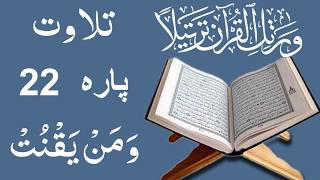 وَرَتِّلِ الْقُرْآنَ تَرْتِيلًا
تلاوت
پارہ 22
وَمَنْ يَقْنُتْ